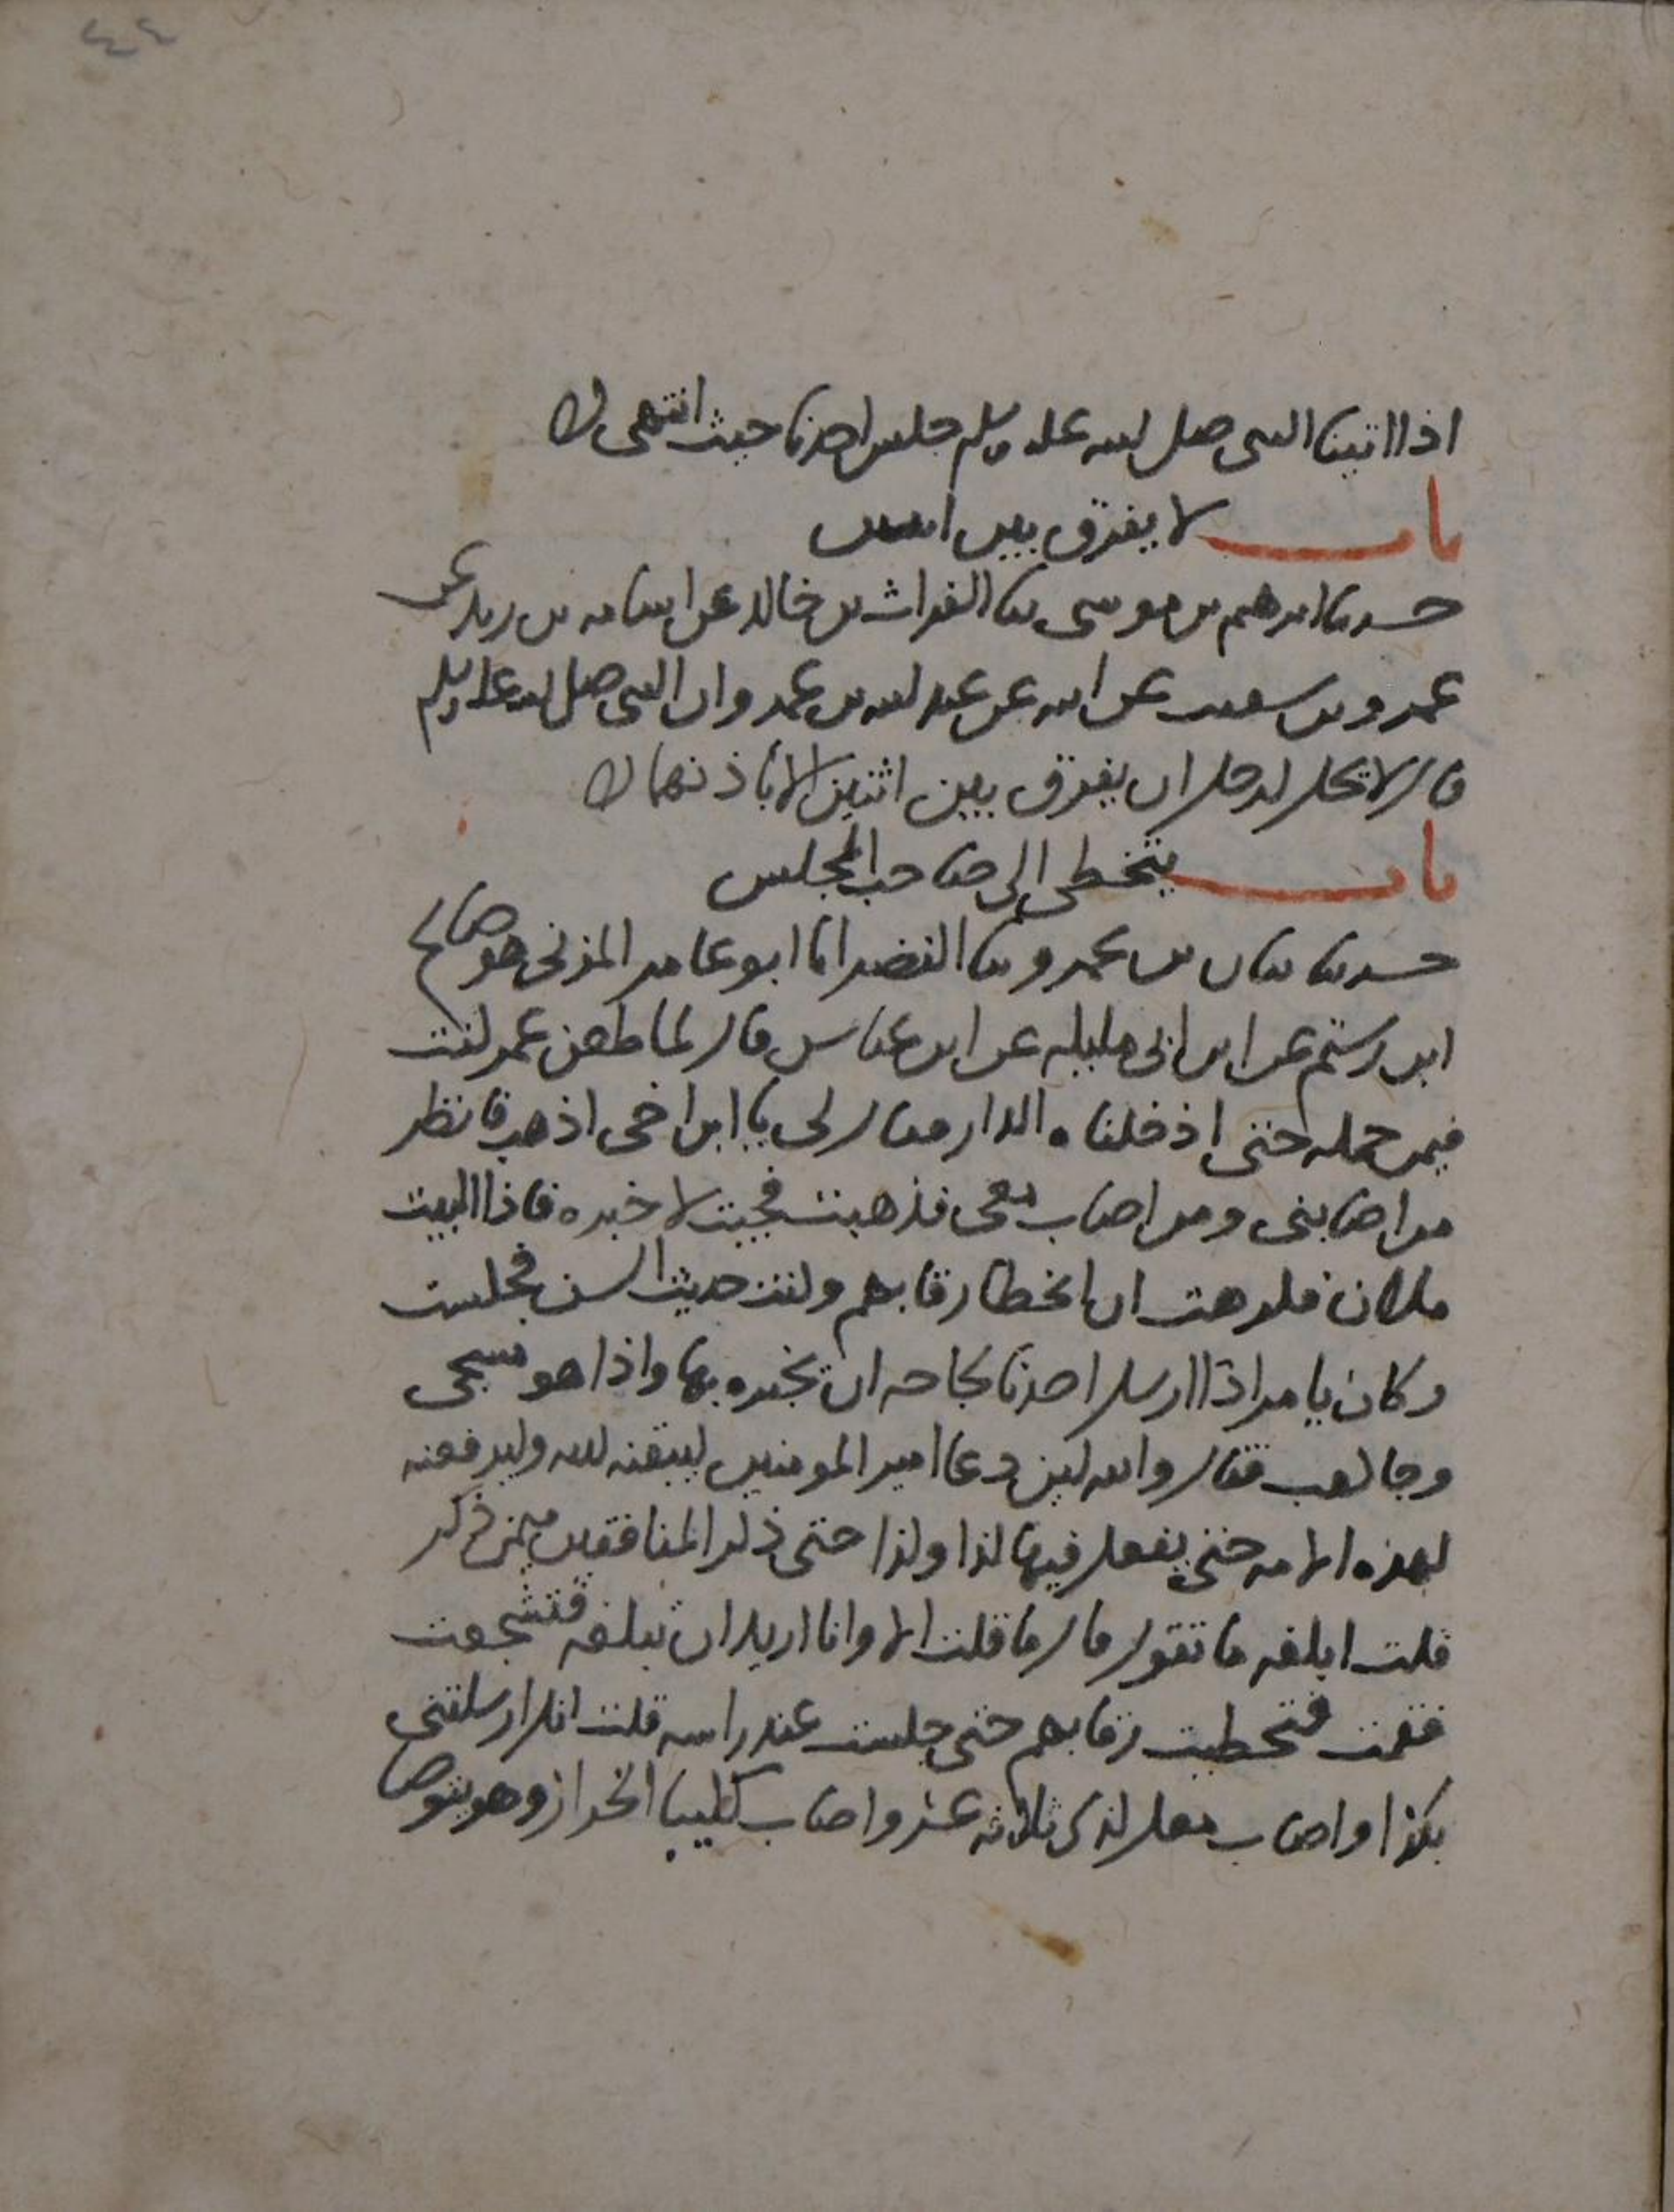 ٤٤
اذا اتينا النبي صلى الله عليه وسلم جلس احدنا حيث انتهى
باب لا يفرق بين اثنين
حدثنا ابرهيم بن موسى ثنا الفرات بن خالد عن اسامه بن زيد عن
عمرو بن سعيب عن ابيه عن عبد الله بن عمرو ان النبي صلى الله عليه وسلم
قال لا يحل لرجل ان يفرق بين اثنين الا باذنهما
باب يتخطى الى صاحب المجلس
حدثنا بيان بن عمرو ثنا النضر انا ابو عامر المزني هو صالح
ابن رستم عن ابن ابي مليكه عن ابن عباس قال لما طعن عمر كنت
فيمن حمله حتى ادخلناه الدار فقال لي يا ابن اخي اذهب فانظر
من اصابني ومن اصاب معي فذهبت فجيت لاخبره فاذا البيت
ملان فكرهت ان اتخطا رقابهم وكنت حديث السن فجلست
وكان يامر اذا ارسل احدنا بحاجه ان يخبره بها واذا هو مسجى
وجا كعب فقال والله لين دعا امير المومنين ليبقنه الله وليرفعنه
لهذه الامه حتى يفعل فيها كذا وكذا حتى ذكر المنافقين فيمن ذكر
قلت ابلغه ما تقول قال ما قلت الا وانا اريد ان تبلغه فتشجعت
فقمت فتخطيت رقابهم حتى جلست عند راسه قلت انك ارسلتني
بكذا واصاب معك كذى ثلاثه عشر واصاب كليبا الخراز وهو يتوضا